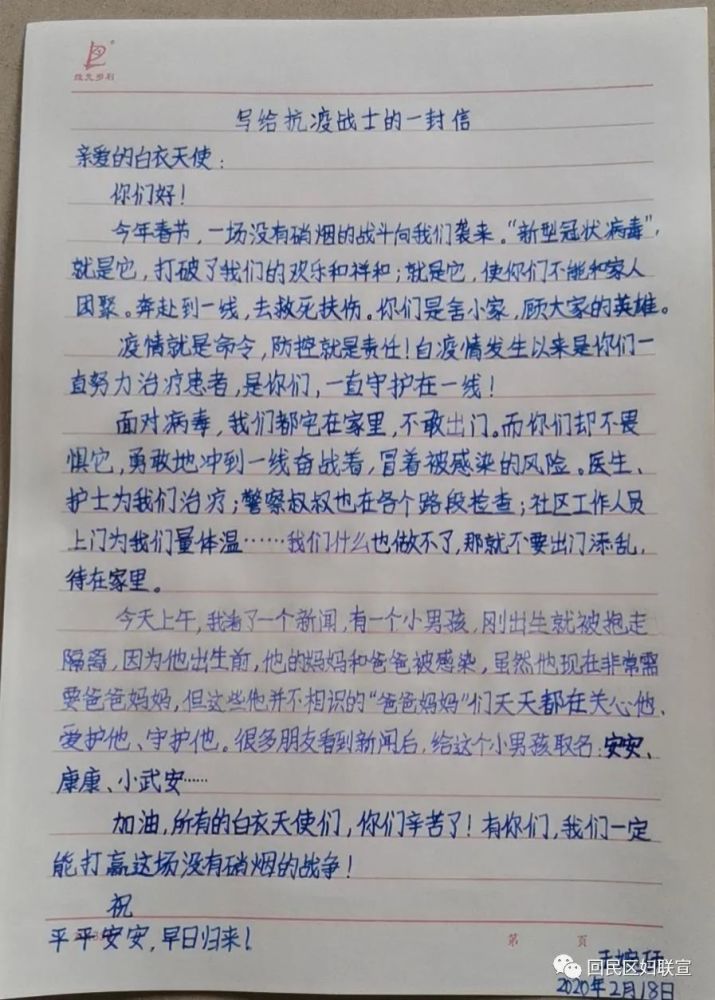 写给抗疫战士的一封信
亲爱的白衣天使：
你们好！
今年春节，一场没有硝烟的战斗向我们袭来。“新型冠状病毒”，
就是它，打破了我们的欢乐和祥和；就是它，使你们不能和家人
团聚。奔赴到一线，去救死扶伤。你们是舍小家，顾大家的英雄。
疫情就是命令，防控就是责任！自疫情发生以来是你们一
直努力治疗患者，是你们，一直守护在一线！
面对病毒，我们都宅在家里，不敢出门。而你们却不畏
惧它，勇敢地冲到一线奋战着，冒着被感染的风险。医生、
护士为我们治疗；警察叔叔也在各个路段检查；社区工作人员
上门为我们量体温……我们什么也做不了，那就不要出门添乱，
待在家里。
今天上午，我看了一个新闻，有一个小男孩，刚出生就被抱走
隔离，因为他出生前，他的妈妈和爸爸被感染，虽然他现在非常需
要爸爸妈妈，但这些他并不相识的“爸爸妈妈”们天天都在关心他、
爱护他、守护他。很多朋友看到新闻后，给这个小男孩取名：安安、
康康、小武安……
加油，所有的白衣天使们，你们辛苦了！有你们，我们一定
能打赢这场没有硝烟的战争！
祝
平平安安，早日归来！
第 页
回民区妇联宣
2020年2月18日